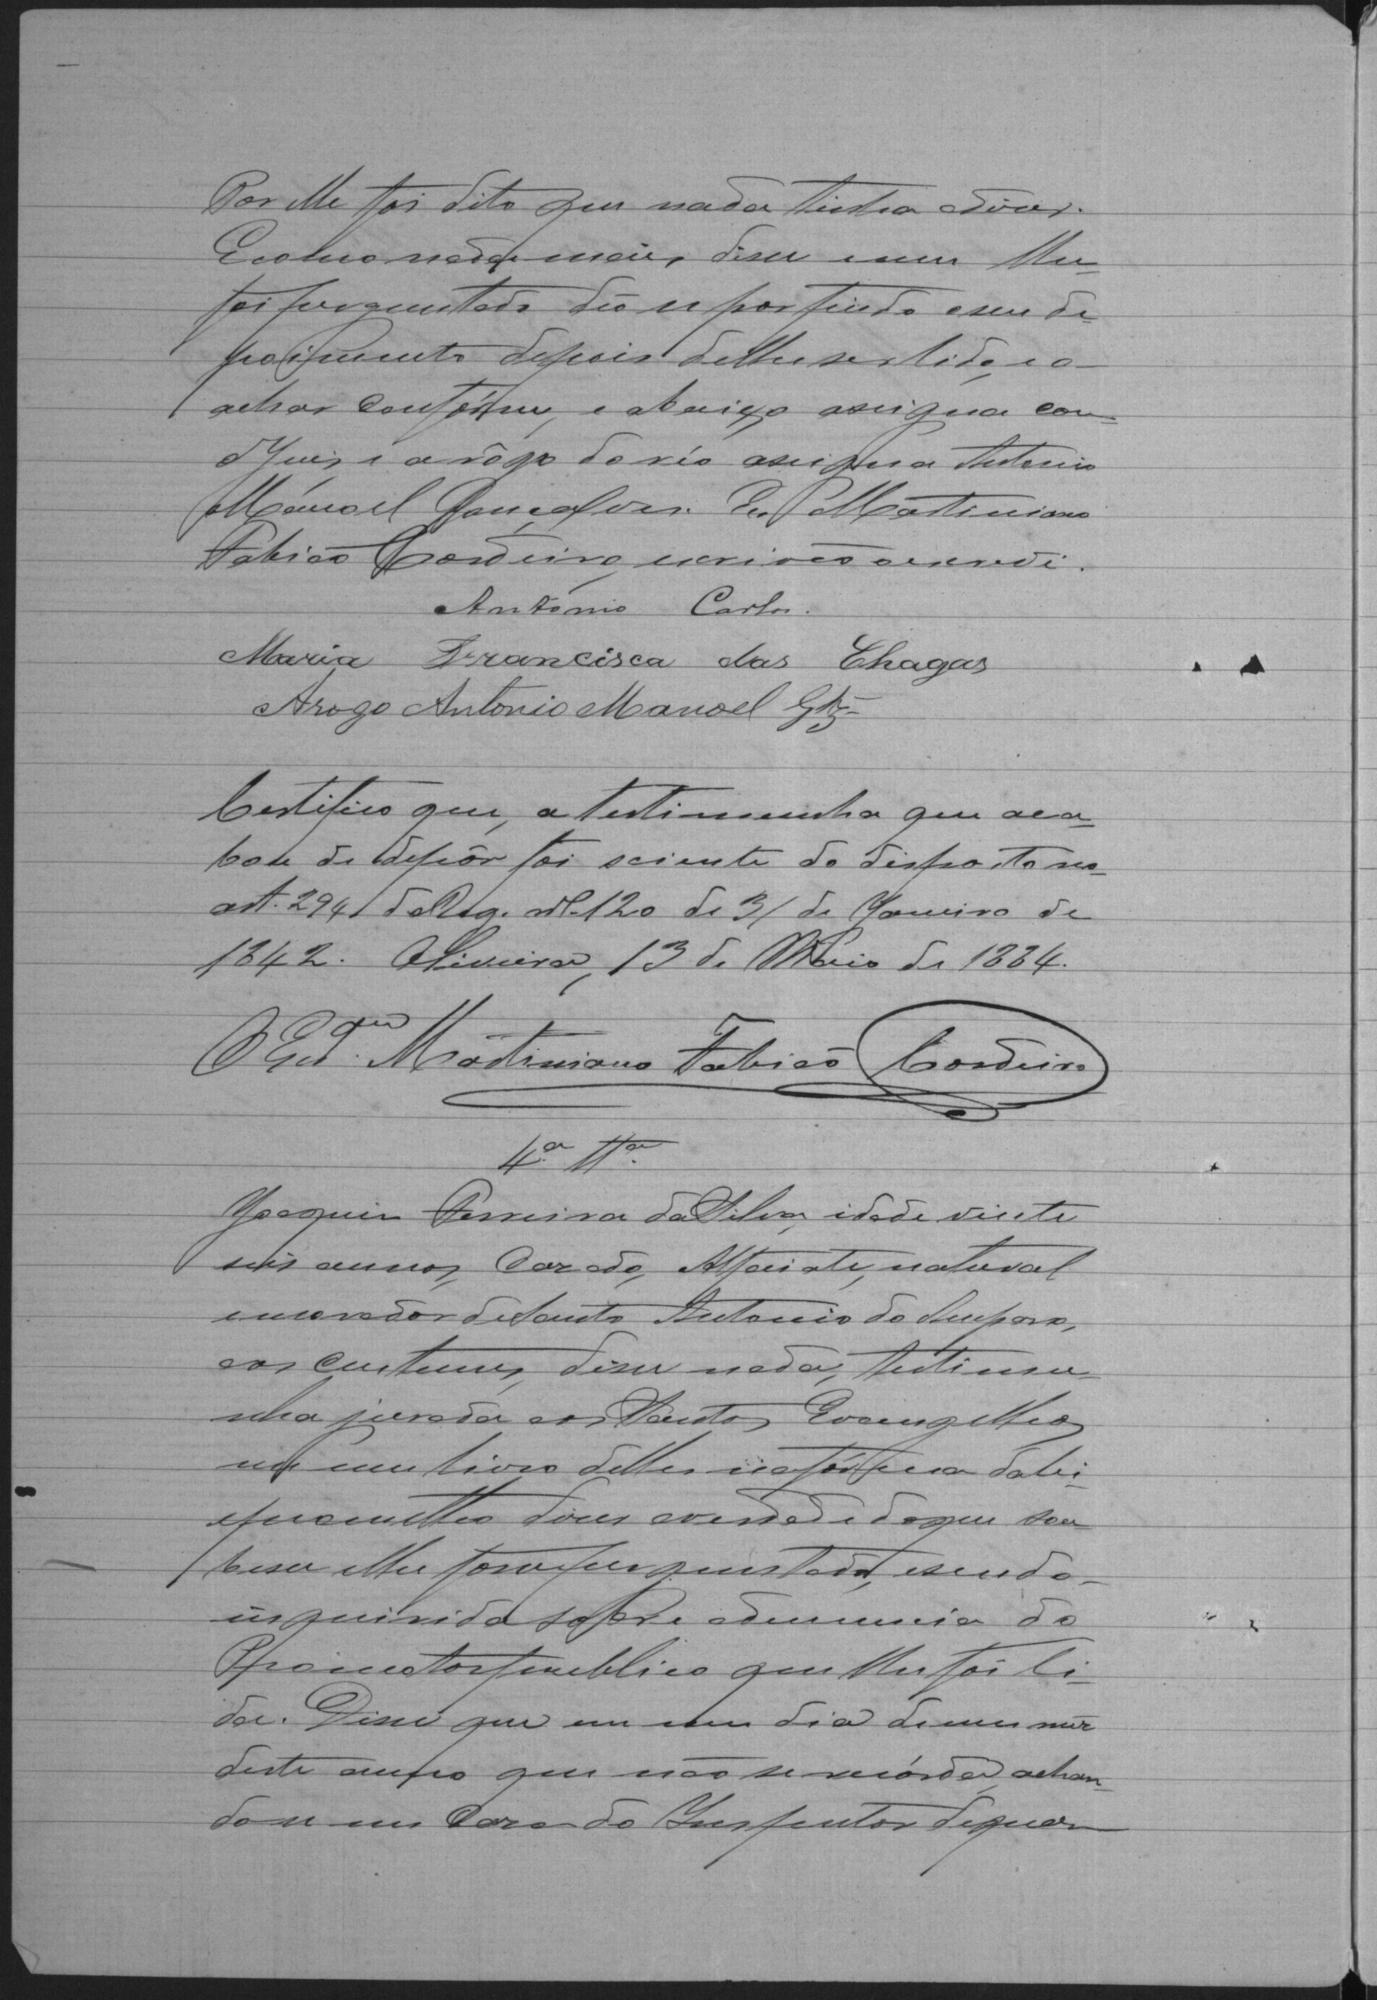 Por elle foi dito que nada tinha a dizer.
E como nada mais disse e nem lhe
foi perguntado deo-se por findo o seu de-
poimento depois de lhe ser lido, e o
achar conforme, e abaixo assigna com
o Juiz e a rôgo do réo assigna Antonio
Manoel Gonçalves. Eu Martiniano
Fabião Cordeiro, escrivão o escrevi.
Antonio Carlos.
Maria Francisca das Chagas
Arogo Antonio Manoel Glz
Certifico que, a testimunha que aca-
bou de depôr foi sciente do disposto no
art. 294 do Reg. nº 120 de 31 de Janeiro de
1842. Oliveira, 13 de Maio de 1884.
O Martiniano Fabião Cordeiro
4.ª Ttª.
Joaquim Ferreira da Silva, idade vinte
seis annos, Casado, Alfaiate, natural
e morador de Santo Antonio do Amparo,
aos custumes, disse nada, testimu-
nha jurada aos Santos Evangelhos
em um livro delles na fórma da lei
e prometteo dizer a verdade do que sou-
besse e lhe fosse perguntado, e sendo
inquirida sobre a denuncia do
Promotor publico que lhe foi li-
da. Disse que em um dia de um mez
deste anno que não se recórda, achan-
do-se em Casa do Inspector de quar-